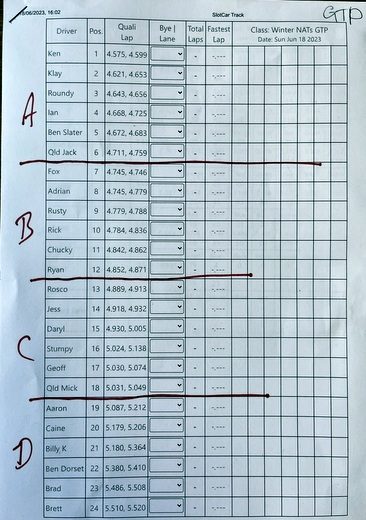 /06/2023, 16:02 SlotCar Track GTP
Driver Pos. Quali Lap Bye | Lane Total Laps Fastest Lap Class: Winter NATs GTP
Date: Sun Jun 18 2023
Ken 1 4.575, 4.599 - -.---
Klay 2 4.621, 4.653 - -.---
Roundy 3 4.643, 4.656 - -.---
A
Ian 4 4.668, 4.725 - -.---
Ben Slater 5 4.672, 4.683 - -.---
Qld Jack 6 4.711, 4.759 - -.---
Fox 7 4.745, 4.746 - -.---
Adrian 8 4.745, 4.779 - -.---
Rusty 9 4.779, 4.788 - -.---
B
Rick 10 4.784, 4.836 - -.---
Chucky 11 4.842, 4.862 - -.---
Ryan 12 4.852, 4.871 - -.---
Rosco 13 4.889, 4.913 - -.---
Jess 14 4.918, 4.932 - -.---
Daryl 15 4.930, 5.005 - -.---
C
Stumpy 16 5.024, 5.138 - -.---
Geoff 17 5.030, 5.074 - -.---
Qld Mick 18 5.031, 5.049 - -.---
Aaron 19 5.087, 5.212 - -.---
Caine 20 5.179, 5.206 - -.---
D
Billy K 21 5.180, 5.364 - -.---
Ben Dorset 22 5.380, 5.410 - -.---
Brad 23 5.486, 5.508 - -.---
Brett 24 5.510, 5.520 - -.---